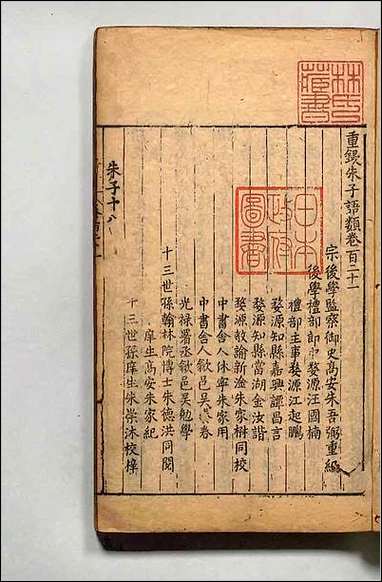 重鋟朱子語類卷百二十一
宗後學監察御史高安朱吾弼重編
後學禮部郎中婺源汪國楠
禮部主事婺源江起鵬
婺源知縣嘉興譚昌言
婺源知縣當湖金汝諧
婺源教諭新淦朱家楙同校
中書舍人休寧朱家用
中書舍人歙邑吳養春
光祿署丞歙邑吳勉學
十三世孫翰林院博士朱德洪同閱
庠生高安朱家紀
十三世孫庠生朱崇沐校梓
朱子十八
林氏藏書
日本政府圖書